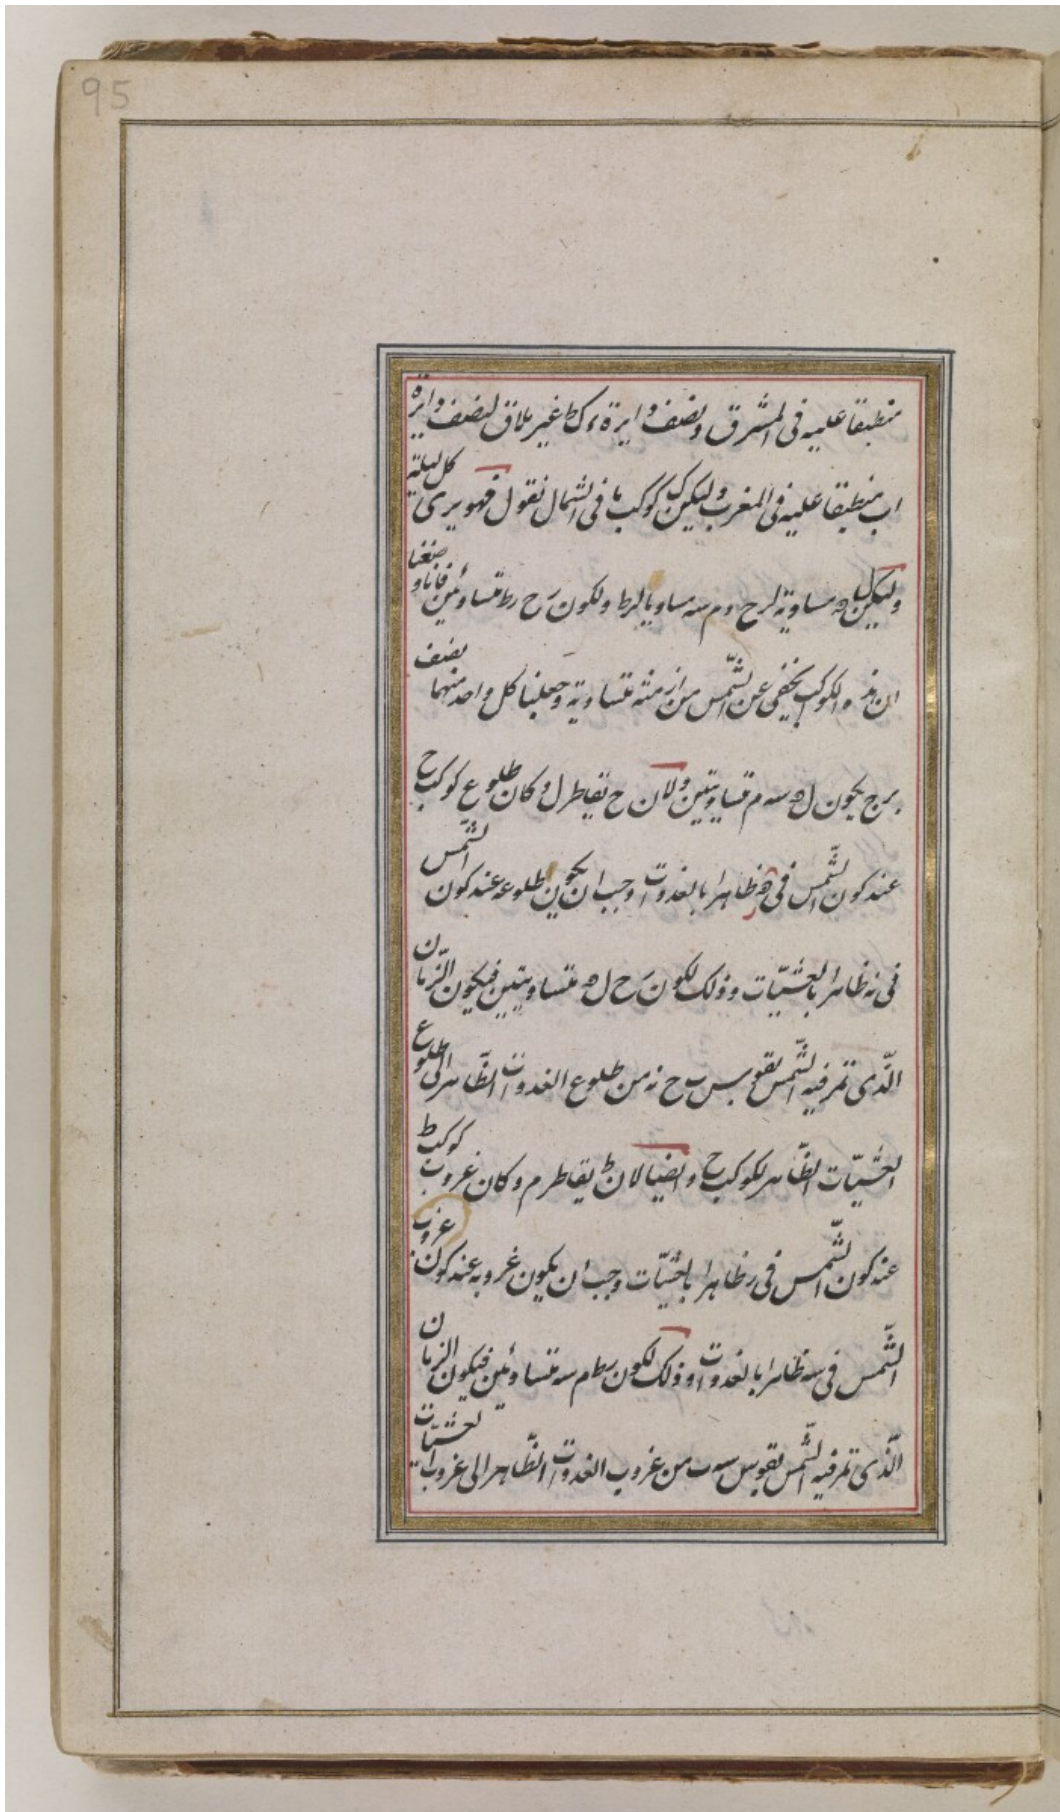 95
منطبقا عليه فى المشرق ونصف دايرة ء ك ط غير ملاق لنصف دايرة
اب منطبقا عليه فى المغرب وليكن ك كوكب ما فى الشمال نقول فهو يرى كل ليلة
وليكن ل ه مساوية لرح و م سه مساويا لرط ولكون رح رط متساوئين فانا وضعنا
ان هذه الكواكب يخفى عن الشمس من ازمنته متساوية وجعلنا كل واحد منهما نصف
برج يكون ل ه سه م متساويتين ولان ح يقاطر ل وكان طلوع كوكب ح
عند كون الشمس فى ه ظاهرا بالغدوات وجب ان يكون طلوعه عند كون الشمس
فى نه ظاهرا بالعشيات وذلك لكون رح ل ه متساويتين فيكون الزمان
الذى تمر فيه الشمس بقوس ب ح نه من طلوع الغدوات الظاهر الى طلوع
العشيات الظاهر لكوكب ح وايضا لان ط يقاطر م وكان غروب كوكب ط
عند كون الشمس فى ر ظاهرا بالعشيات وجب ان يكون غروبه عند كون غروب
الشمس فى سه ظاهرا بالغدوات وذلك لكون رط م سه متساوئين فيكون الزمان
الذى تمر فيه الشمس بقوس سه ب من غروب الغدوات الظاهر الى غروب العشيات